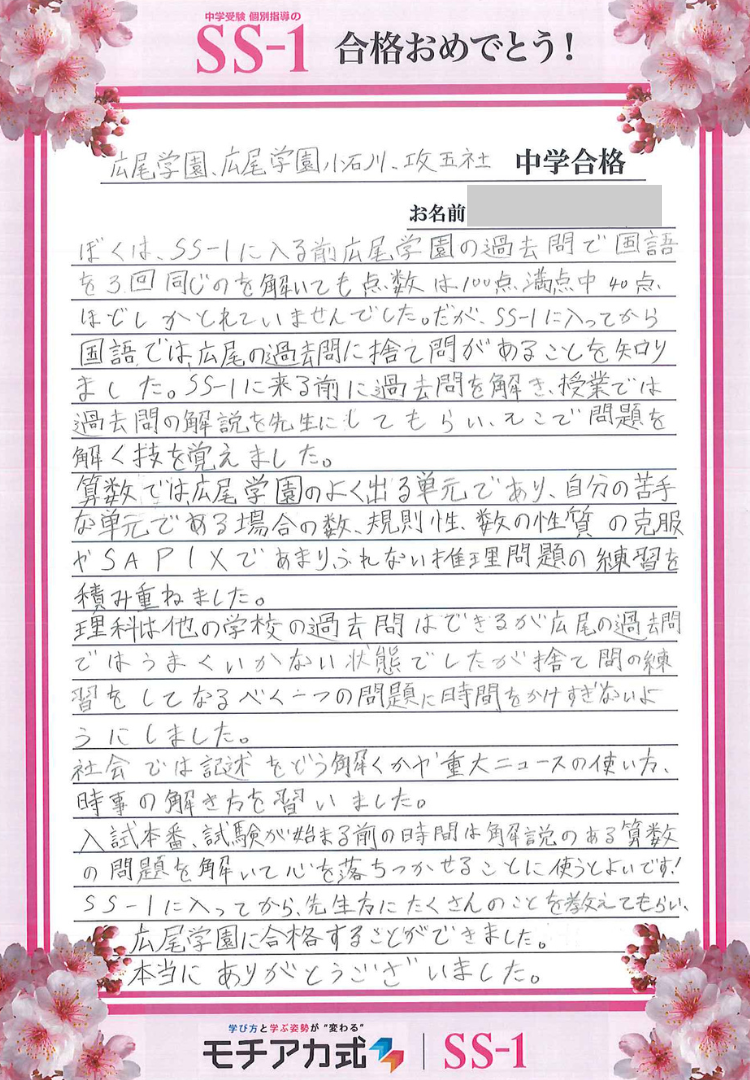 中学受験 個別指導の
SS-1 合格おめでとう！
広尾学園、広尾学園小石川、攻玉社 中学合格
お名前
ぼくは、SS-1に入る前広尾学園の過去問で国語
を3回同じのを解いても点数は100点満点中40点
ほどしかとれていませんでした。だが、SS-1に入ってから
国語では広尾の過去問に捨て問があることを知り
ました。SS-1に来る前に過去問を解き、授業では
過去問の解説を先生にしてもらい、そこで問題を
解く技を覚えました。
算数では広尾学園のよく出る単元であり、自分の苦手
な単元である場合の数、規則性、数の性質の克服
やSAPIXであまりふれない推理問題の練習を
積み重ねました。
理科は他の学校の過去問はできるが広尾の過去問
ではうまくいかない状態でしたが捨て問の練
習をしてなるべく一つの問題に時間をかけすぎないよ
うにしました。
社会では記述をどう解くかや重大ニュースの使い方、
時事の解き方を習いました。
入試本番、試験が始まる前の時間は解説のある算数
の問題を解いて心を落ちつかせることに使うとよいです!
SS-1に入ってから、先生方にたくさんのことを教えてもらい、
広尾学園に合格することができました。
本当にありがとうございました。
学び方と学ぶ姿勢が“変わる”
モチアカ式 SS-1